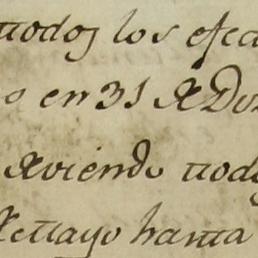 ttodos los efec
o en 31 de Do
deviendo ttod
de Mayo hasta